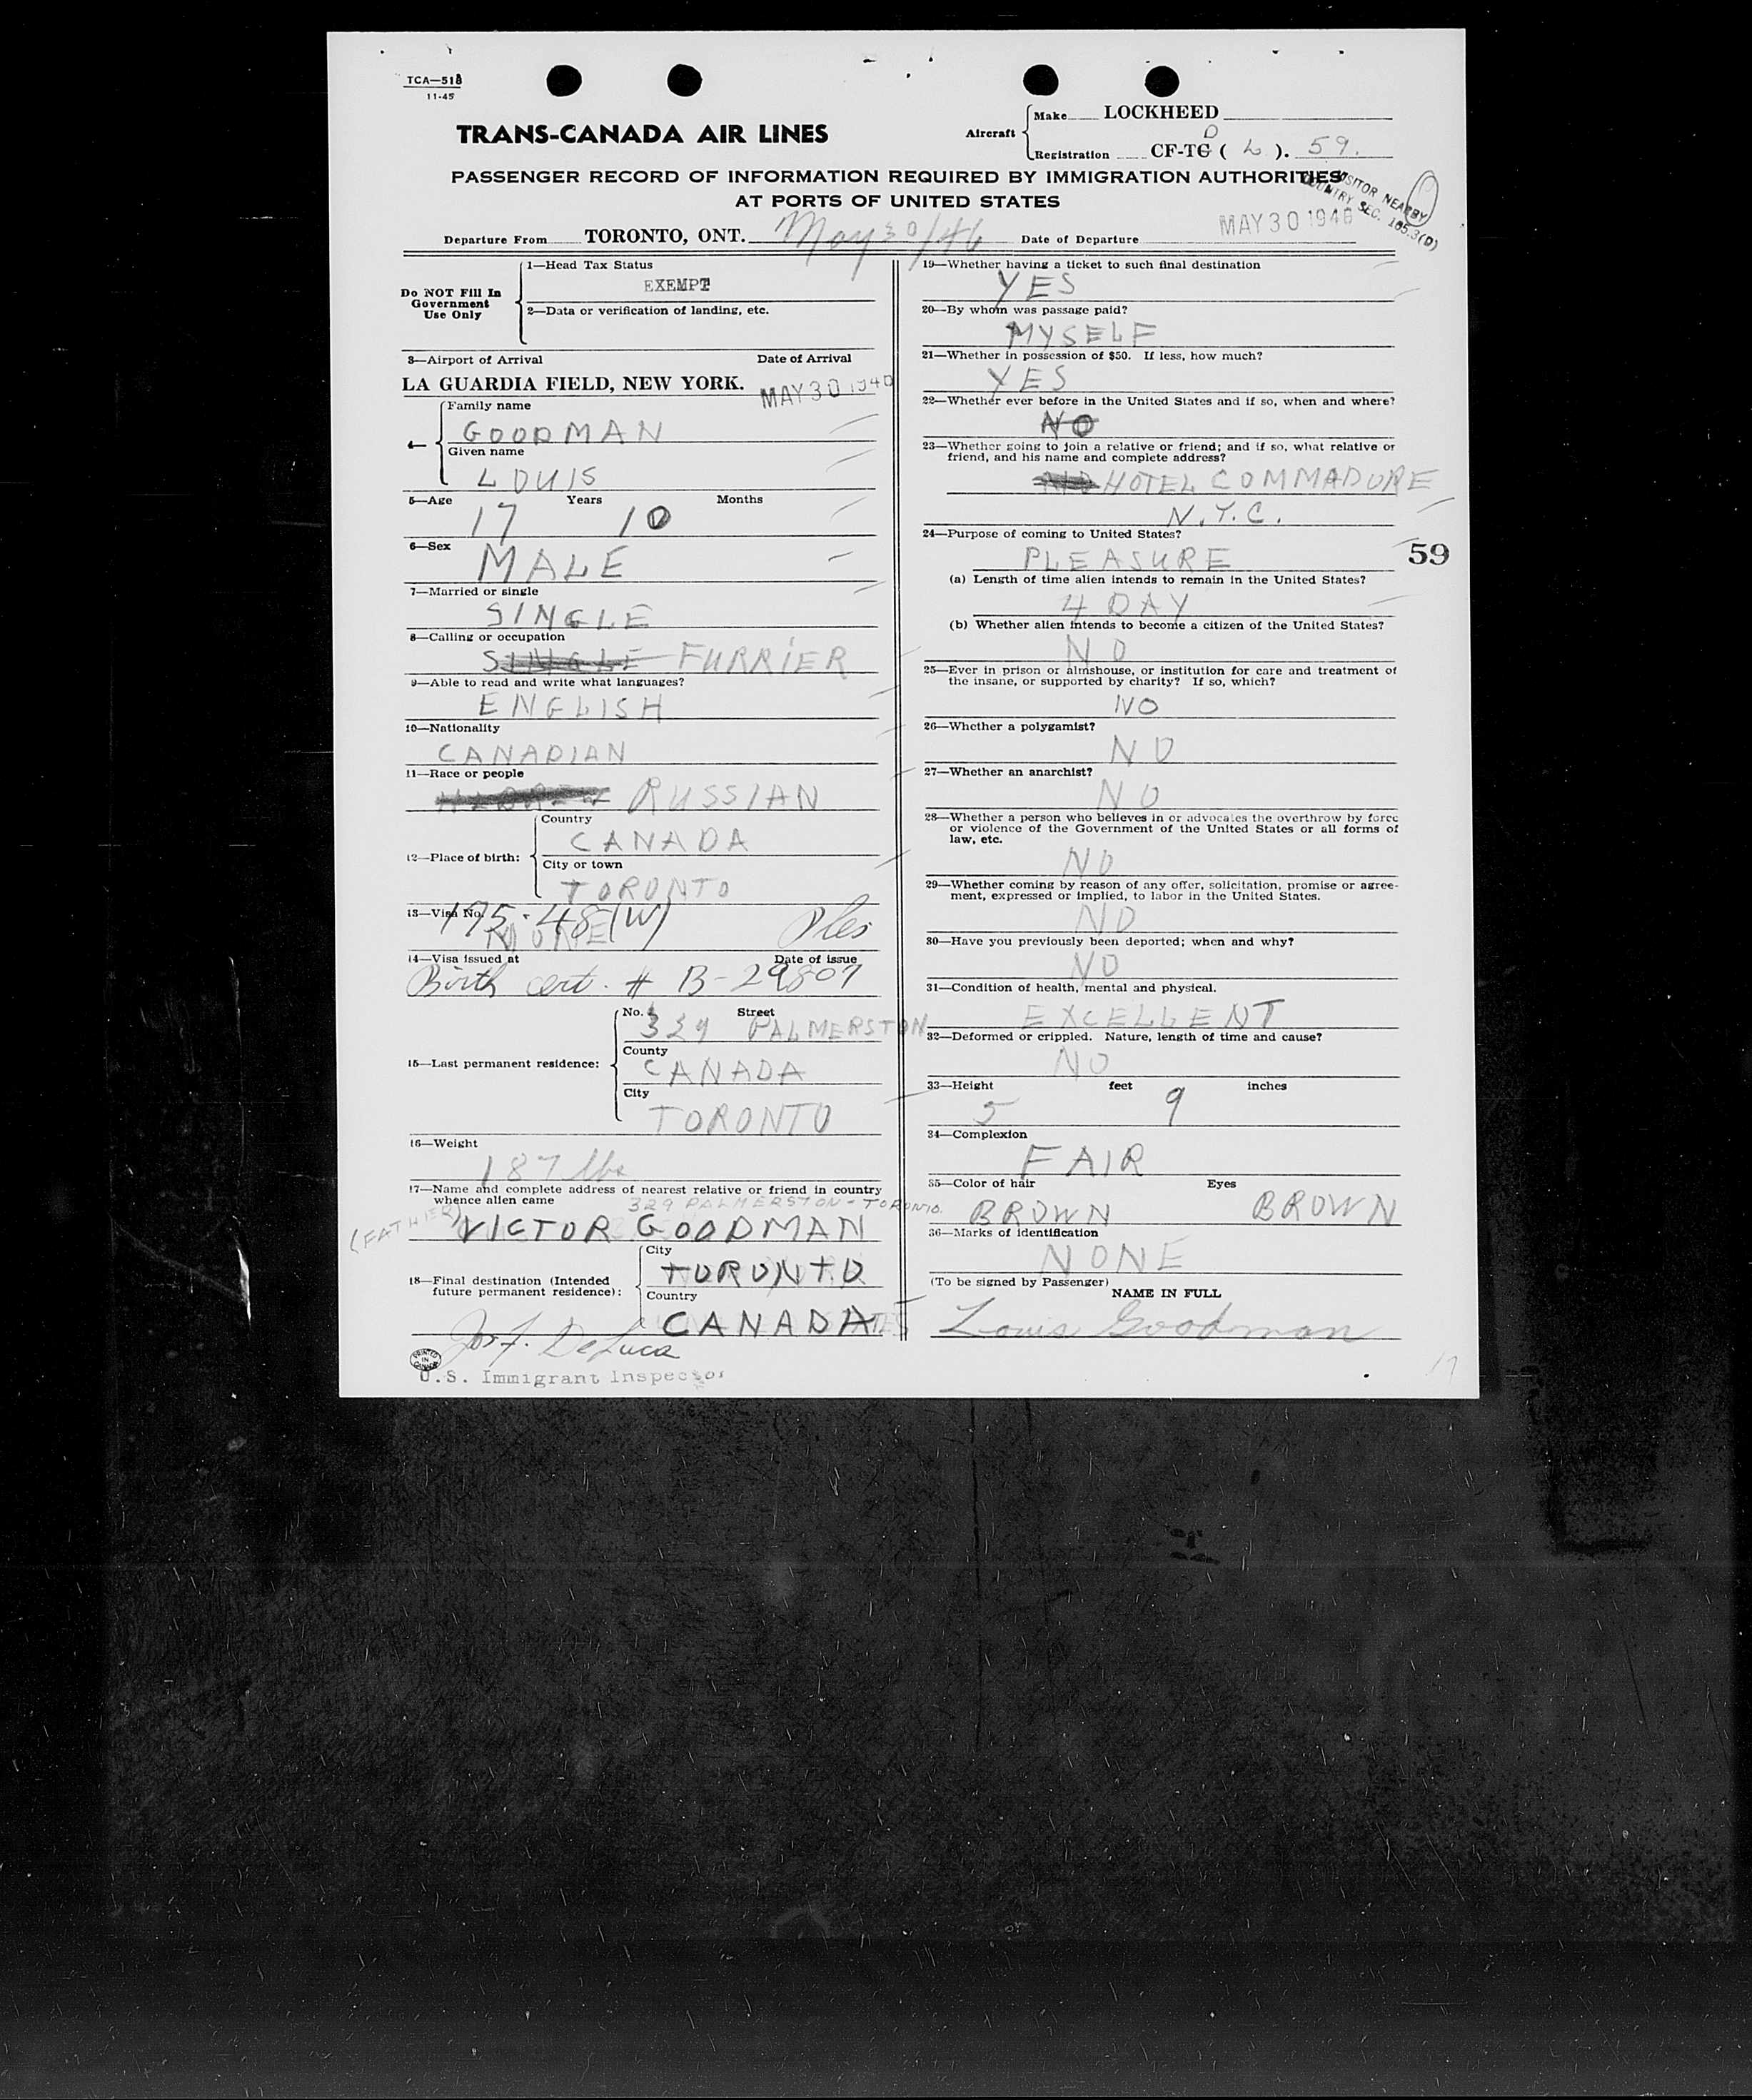 TCA—518
11-45
TRANS-CANADA AIR LINES
Aircraft
Make LOCKHEED
D
Registration CF-TG ( L ). 59.
PASSENGER RECORD OF INFORMATION REQUIRED BY IMMIGRATION AUTHORITIES
AT PORTS OF UNITED STATES
VISITOR NEARBY
COUNTRY SEC. 165.3(D)
Departure From TORONTO, ONT. May 30/46 Date of Departure MAY 30 1946
Do NOT Fill In
Government
Use Only
1—Head Tax Status
EXEMPT
2—Data or verification of landing, etc.
3—Airport of Arrival Date of Arrival
LA GUARDIA FIELD, NEW YORK. MAY 30 1946
4—
Family name
GOODMAN
Given name
LOUIS
5—Age Years Months
17 10
6—Sex
MALE
7—Married or single
SINGLE
8—Calling or occupation
SINGLE FURRIER
9—Able to read and write what languages?
ENGLISH
10—Nationality
CANADIAN
11—Race or people
HEBREW RUSSIAN
12—Place of birth:
Country
CANADA
City or town
TORONTO
13—Visa No.
175.48(W)
NONE
14—Visa issued at Date of issue
Birth cert. # B-29807
15—Last permanent residence:
No. Street
329 PALMERSTON
County
CANADA
City
TORONTO
16—Weight
187 lbs
17—Name and complete address of nearest relative or friend in country
whence alien came
329 PALMERSTON - TORONTO.
(FATHER) VICTOR GOODMAN
18—Final destination (Intended
future permanent residence):
City
TORONTO
Country
CANADA
Jos F. DeLuca
PRINTED
IN
CANADA
U.S. Immigrant Inspector
19—Whether having a ticket to such final destination
YES
20—By whom was passage paid?
MYSELF
21—Whether in possession of $50. If less, how much?
YES
22—Whether ever before in the United States and if so, when and where?
NO
23—Whether going to join a relative or friend; and if so, what relative or
friend, and his name and complete address?
NO HOTEL COMMADORE
N.Y.C.
24—Purpose of coming to United States?
PLEASURE
59
(a) Length of time alien intends to remain in the United States?
4 DAY
(b) Whether alien intends to become a citizen of the United States?
NO
25—Ever in prison or almshouse, or institution for care and treatment of
the insane, or supported by charity? If so, which?
NO
26—Whether a polygamist?
NO
27—Whether an anarchist?
NO
28—Whether a person who believes in or advocates the overthrow by force
or violence of the Government of the United States or all forms of
law, etc.
NO
29—Whether coming by reason of any offer, solicitation, promise or agree-
ment, expressed or implied, to labor in the United States.
NO
30—Have you previously been deported; when and why?
NO
31—Condition of health, mental and physical.
EXCELLENT
32—Deformed or crippled. Nature, length of time and cause?
NO
33—Height feet inches
5 9
34—Complexion
FAIR
35—Color of hair Eyes
BROWN BROWN
36—Marks of identification
NONE
(To be signed by Passenger)
NAME IN FULL
Louis Goodman
17